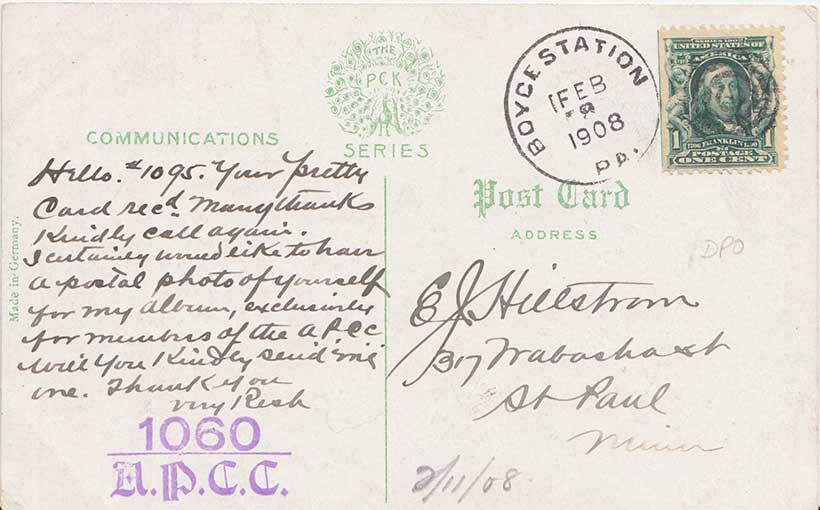 THE
PCK
SERIES
COMMUNICATIONS
Hello. #1095. Your pretty
Card recd. Many thanks
Kindly call again.
I certainly would like to have
a postal photo of yourself
for my album, exclusively
for members of the A.P.C.C.
Will you Kindly send me
one. Thank you
very Resp
1060
A.P.C.C.
Made in Germany.
BOYCE STATION
FEB
1908
PA.
SERIES 1902
UNITED STATES OF
AMERICA
1 FRANKLIN 1
POSTAGE
ONE CENT
Post Card
ADDRESS
DPO
E J Hillstrom
317 Wabasha st
St Paul
Minn
2/11/08